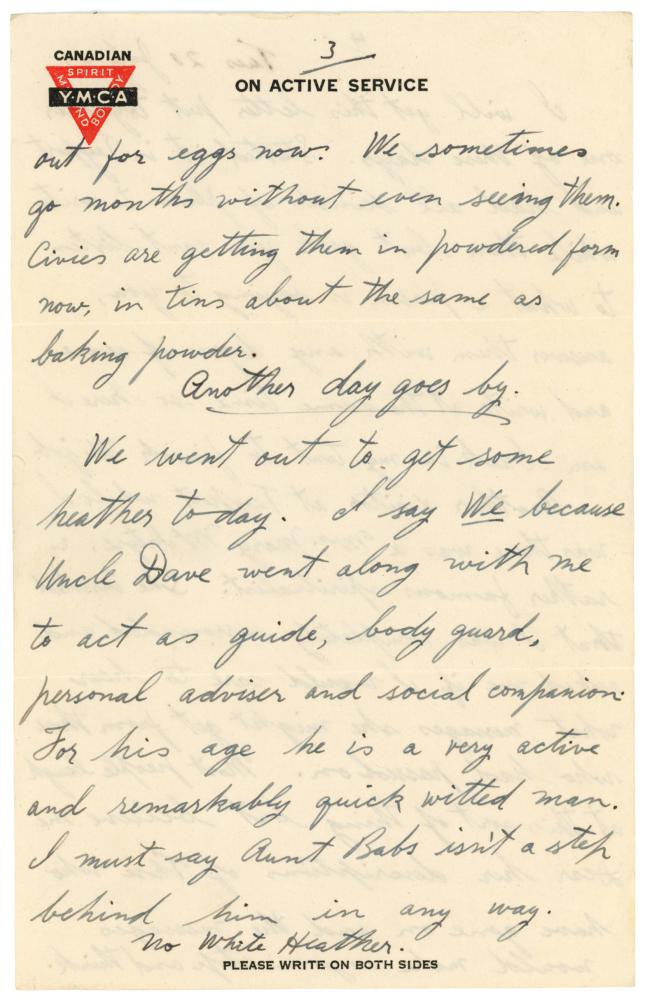 CANADIAN
SPIRIT
Y·M·C·A
MIND
BODY
3
ON ACTIVE SERVICE
out for eggs now. We sometimes
go months without even seeing them.
Civies are getting them in powdered form
now, in tins about the same as
baking powder.
Another day goes by.
We went out to get some
heather today. I say We because
Uncle Dave went along with me
to act as guide, body guard,
personal adviser and social companion.
For his age he is a very active
and remarkably quick witted man.
I must say Aunt Babs isn't a step
behind him in any way.
No White Heather.
PLEASE WRITE ON BOTH SIDES